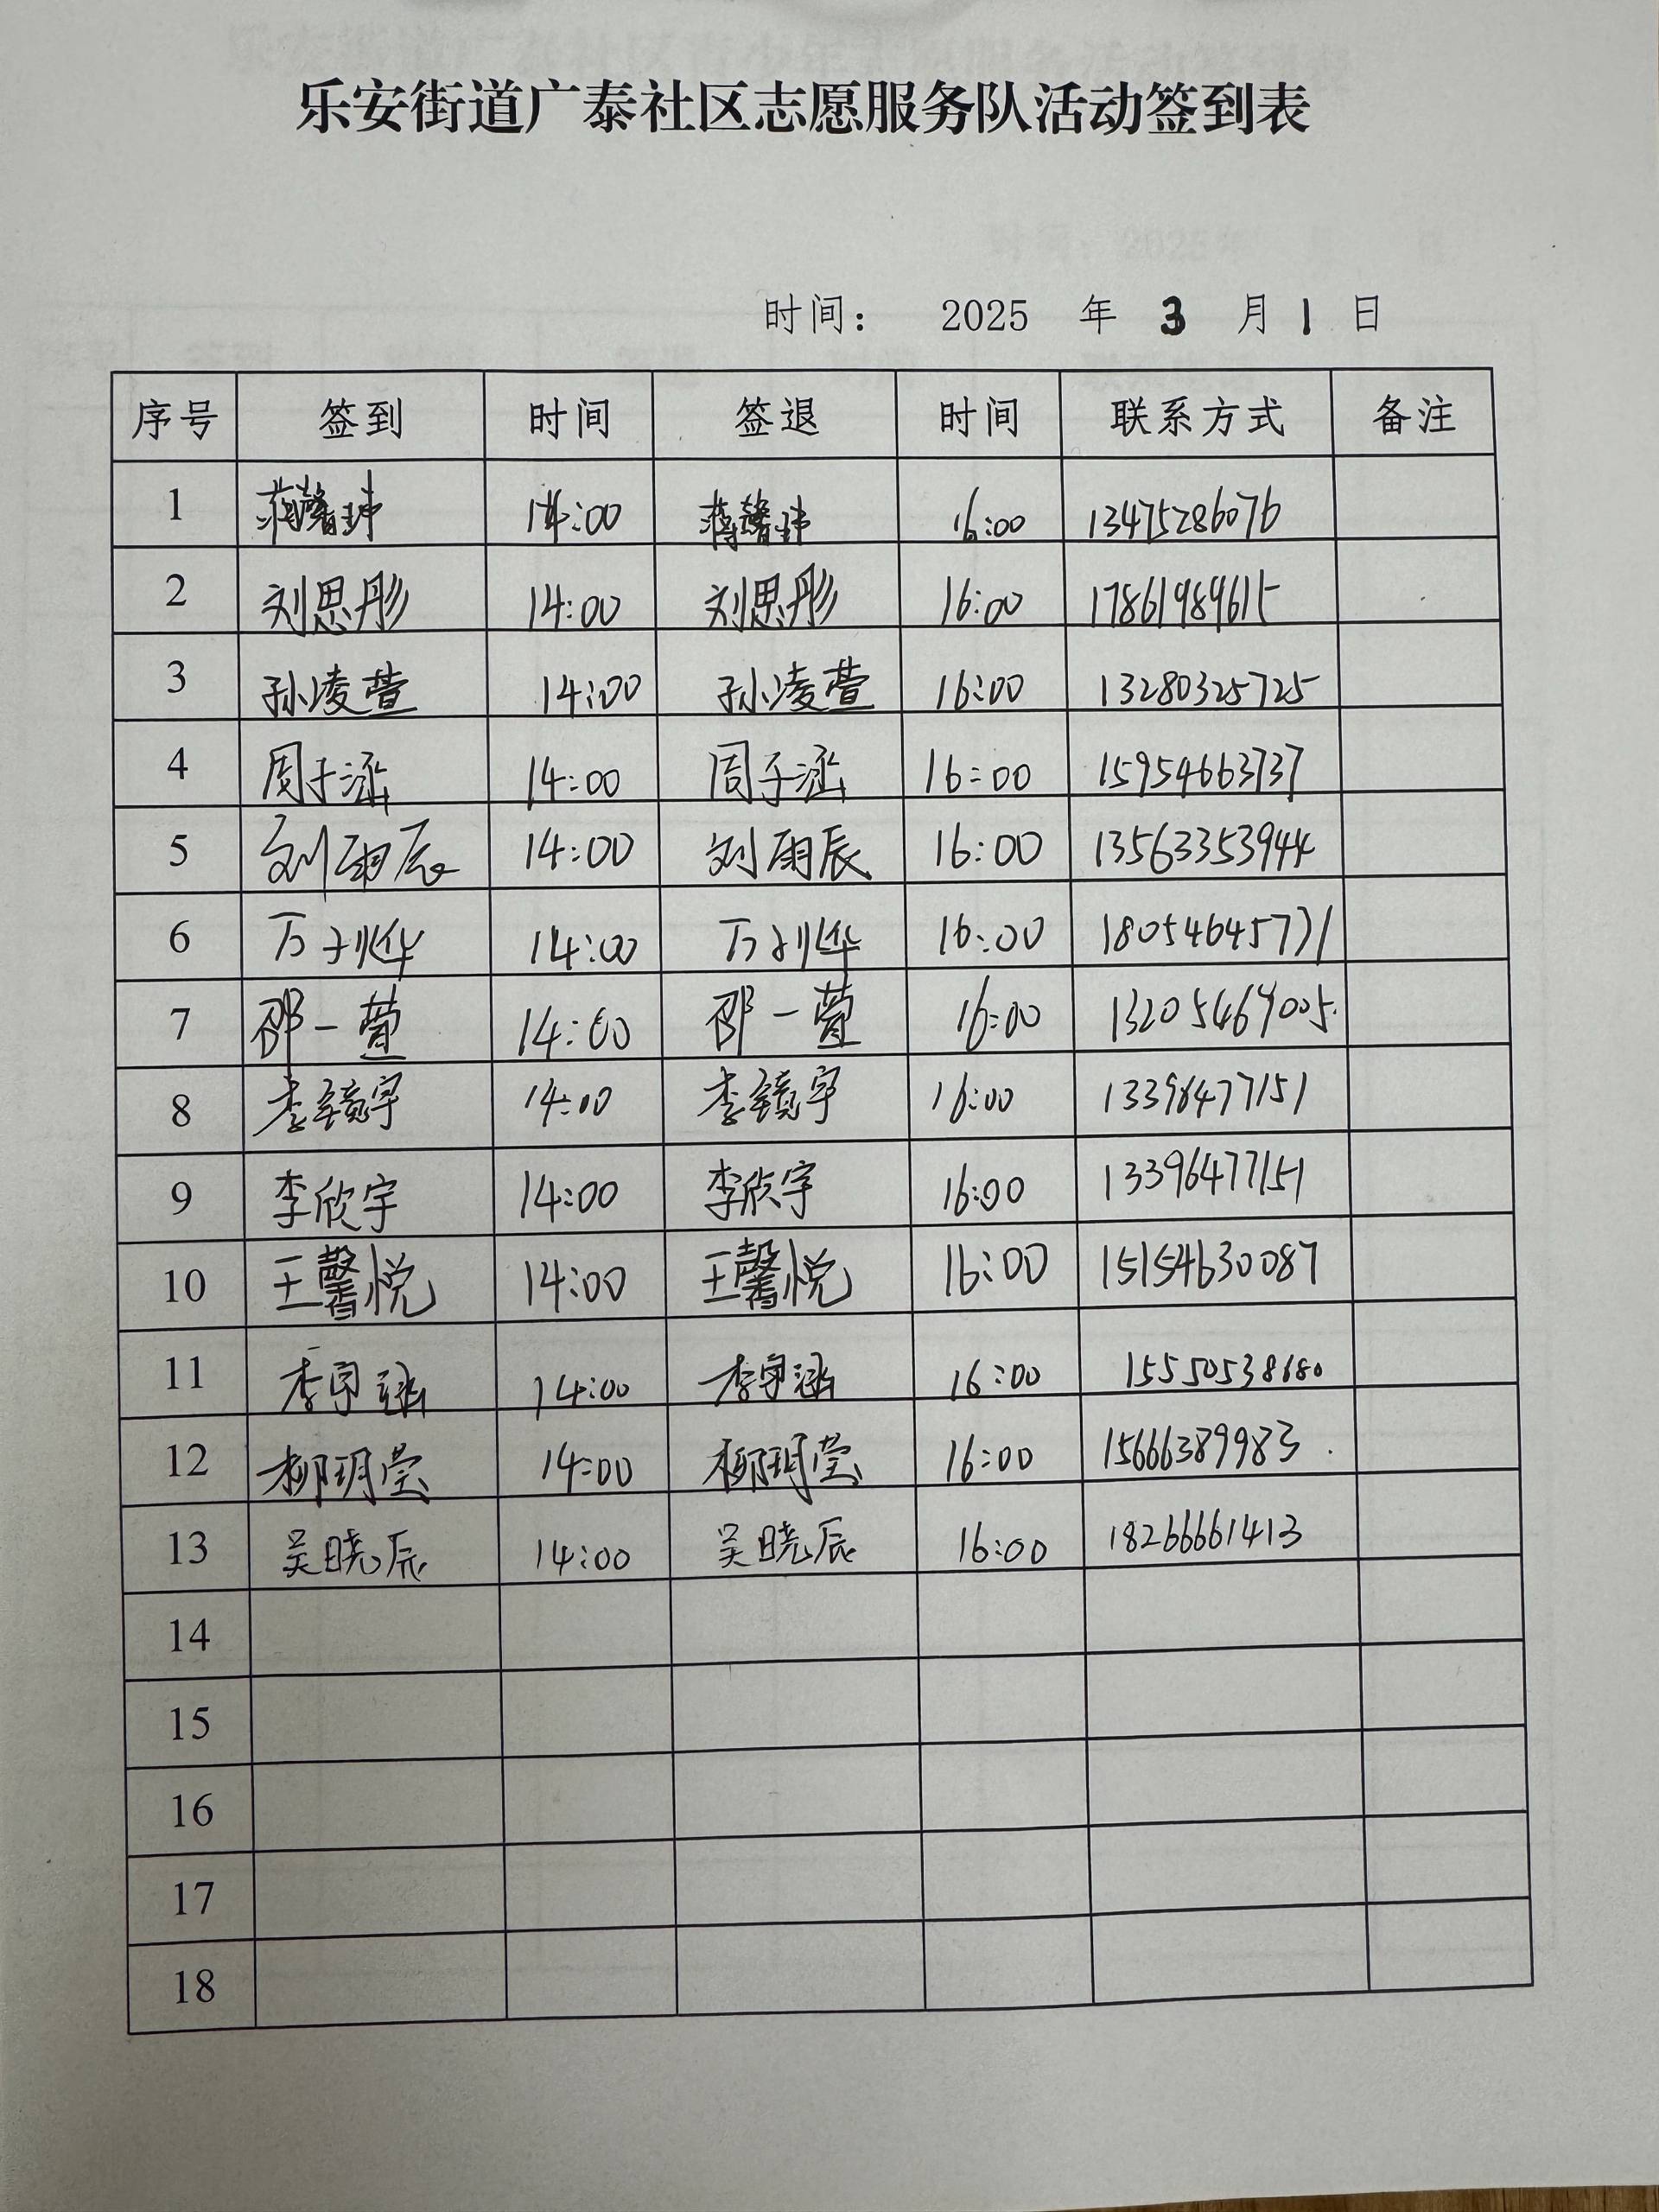 乐安街道广泰社区志愿服务队活动签到表
时间： 2025 年 3 月 1 日
序号 签到 时间 签退 时间 联系方式 备注
1 蒋馨玮 14:00 蒋馨玮 16:00 13475286076
2 刘思彤 14:00 刘思彤 16:00 17861989615
3 孙凌萱 14:00 孙凌萱 16:00 13280325725
4 周子涵 14:00 周子涵 16:00 15954663737
5 刘雨辰 14:00 刘雨辰 16:00 13563353944
6 14:00 16:00 18054645771
7 邵一萱 14:00 邵一萱 16:00 13205469005
8 李镜宇 14:00 李镜宇 16:00 13396477151
9 李欣宇 14:00 李欣宇 16:00 13396477151
10 王馨悦 14:00 王馨悦 16:00 15154630087
11 李宇涵 14:00 李宇涵 16:00 15550538680
12 柳玥莹 14:00 柳玥莹 16:00 15666389983
13 吴晓辰 14:00 吴晓辰 16:00 18266661413
14
15
16
17
18